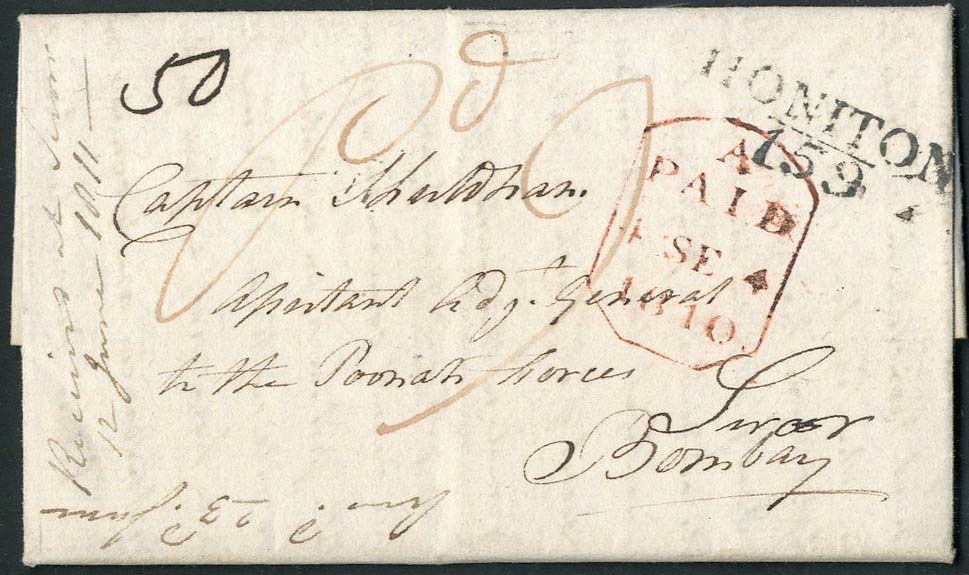 50
Pd
HONITON
159
A
PAID
SE 4
1810
Captain Shuldham
Assistant Adjt. General
to the Poonah forces
Bombay
Received at
12 June 1811